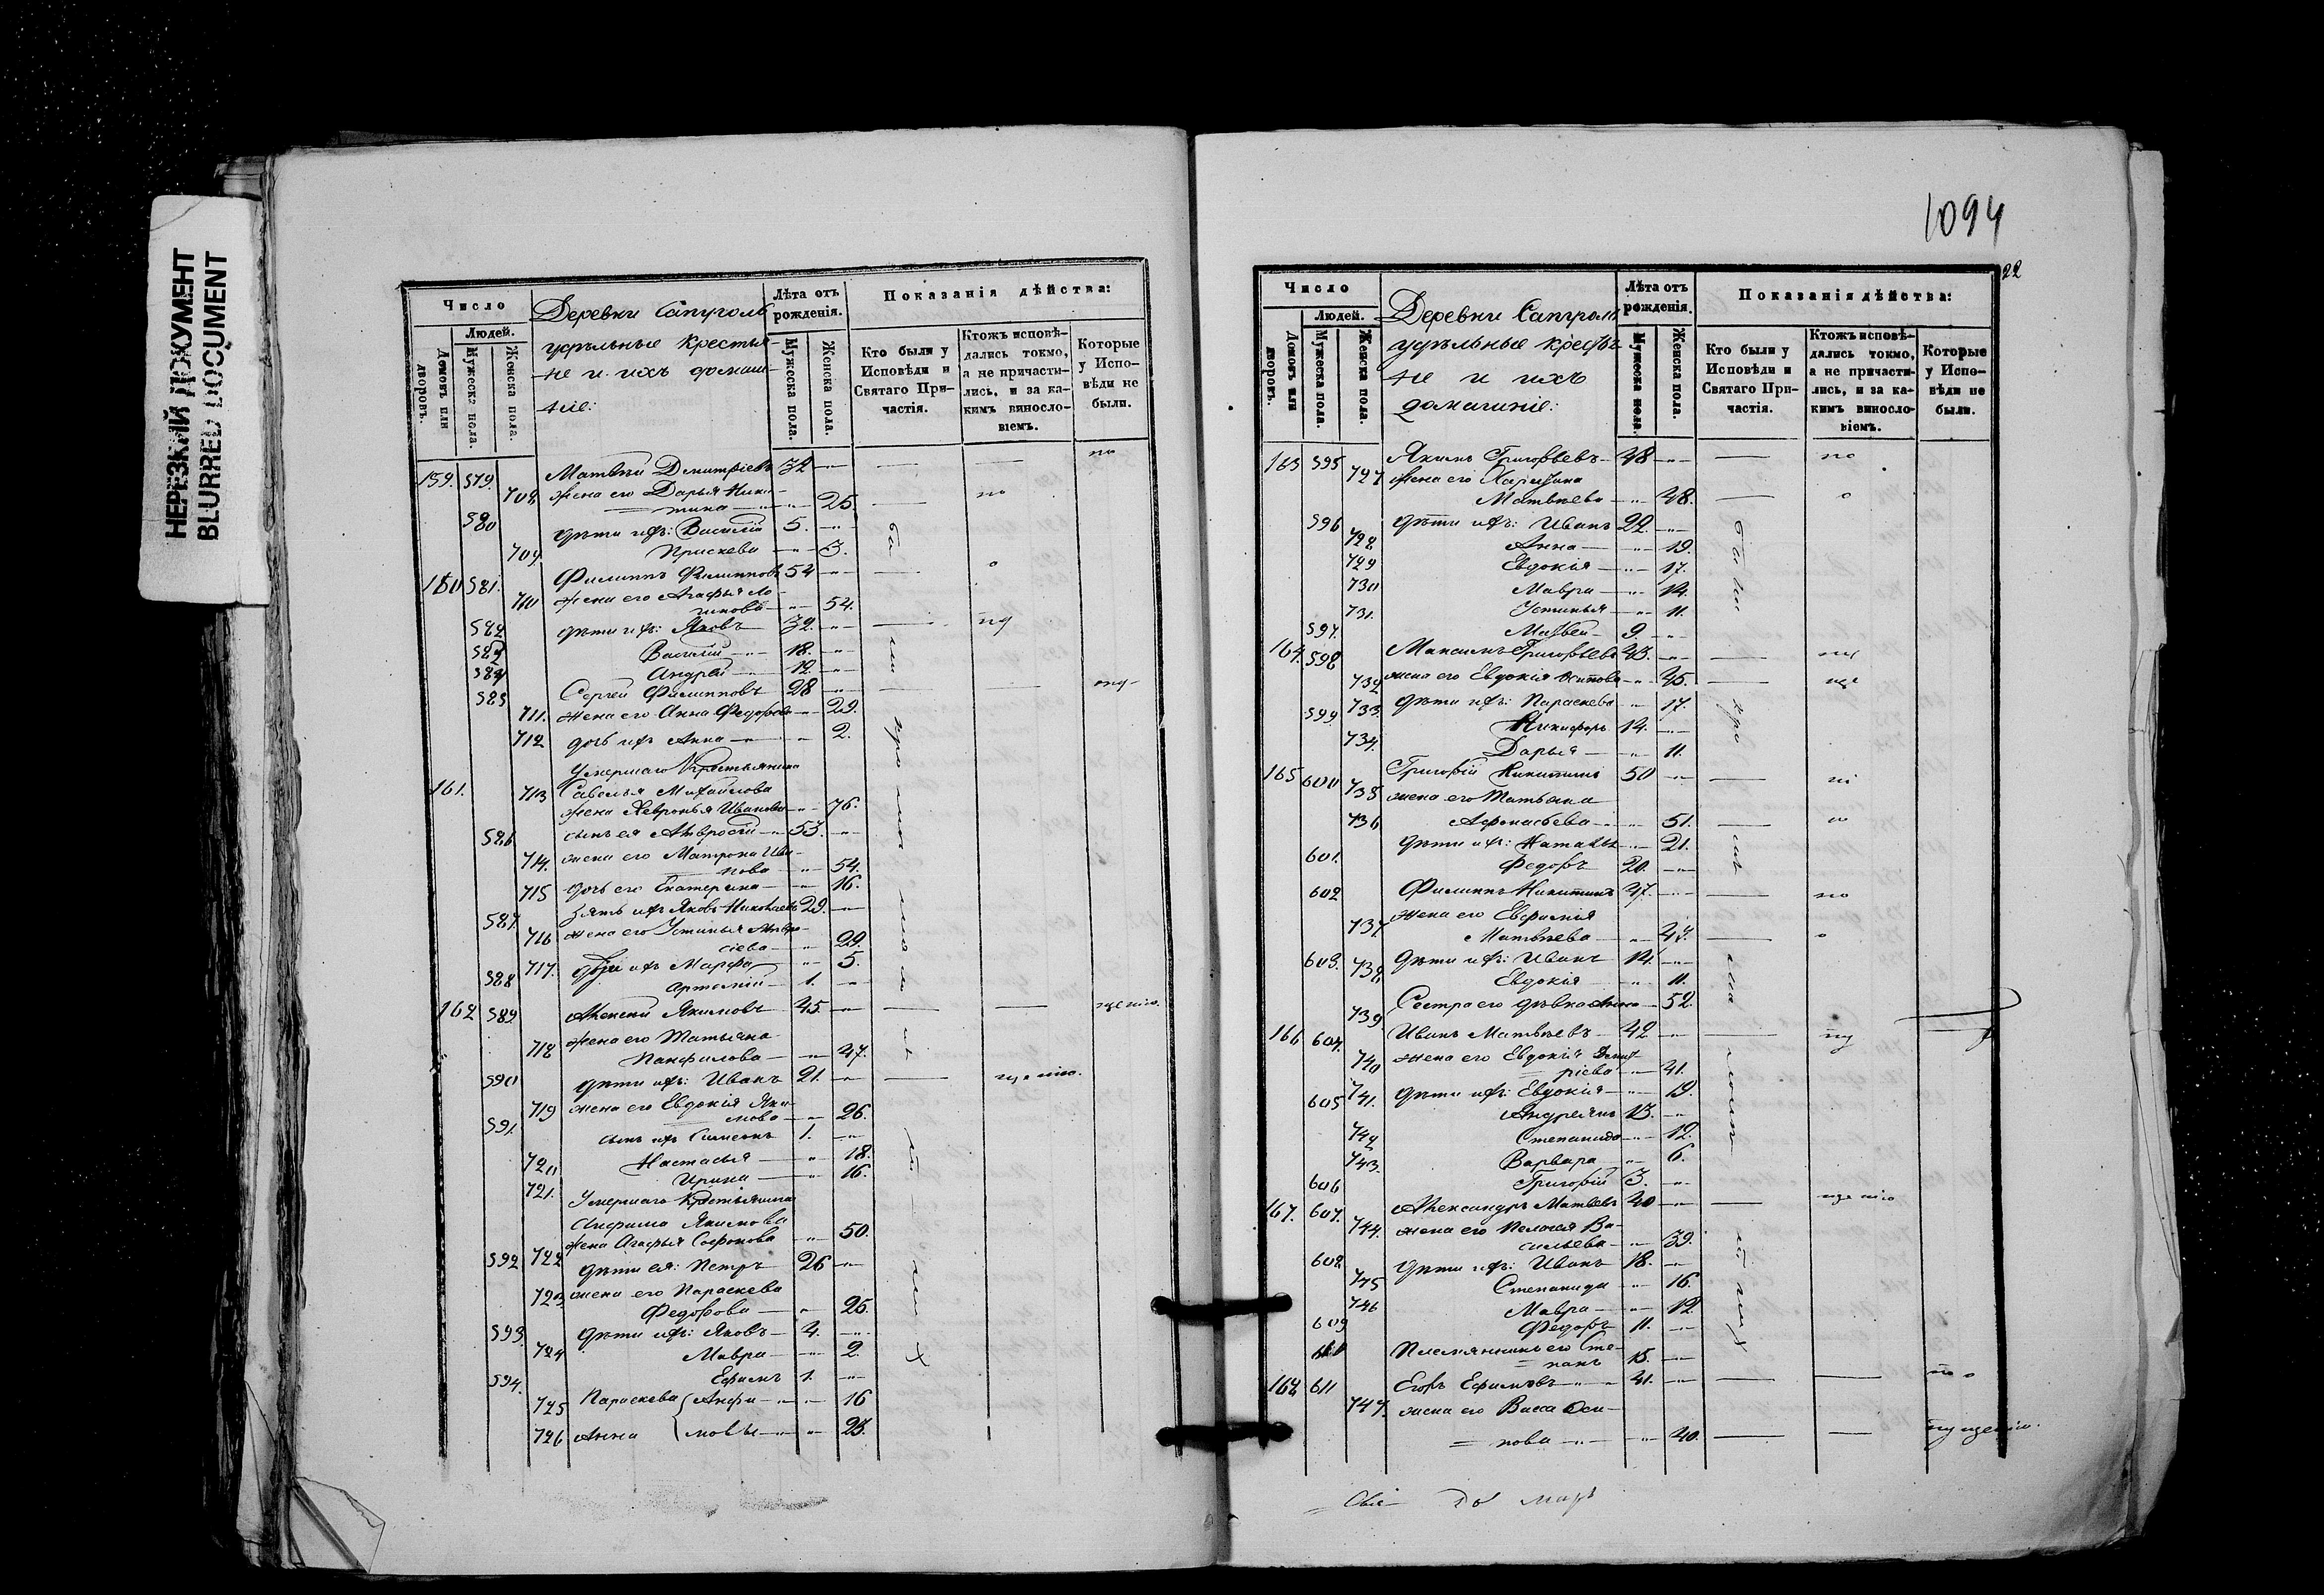 НЕРЕЗКИЙ ДОКУМЕНТ
BLURRED DOCUMENT
Число
Людей.
Домовъ или дворовъ.
Мужеска пола.
Женска пола.
Деревни Сапуголь
удѣльные крестья-
не и ихъ домаш-
ние:
Лѣта отъ рожденія.
Мужеска пола.
Женска пола.
Показанія дѣйства:
Кто были у Исповѣди и Святаго При-частія.
Ктожъ исповѣ-дались токмо, а не причасти-лись, и за ка-кимъ виносло-віемъ.
Которые у Испо-вѣди не были.
159. 579. Матвѣй Дмитріевъ 32
708 жена его Дарья Ники-
тина 25.
580 дѣти ихъ: Василій 5.
709 Праскева 3.
160 581. Филиппъ Филипповъ 54
710 жена его Агафья Ло-
гинова 54.
582 дѣти ихъ: Яковъ 32.
583 Василій 18.
584 Андрей 12.
585 Сергей Филипповъ 28
711. жена его Анна Федорова 29.
712 дочь ихъ Анна 2.
Умершаго Крестьянина
161. 713 Савелья Михайлова
жена Хевронья Иванова 76.
586 сынъ ея Амвросій 53.
714. жена его Матрона Ива-
нова 54.
715 дочь его Екатерина 16.
587. зять ихъ Яковъ Николаевъ 29.
716 жена его Устинья Амвро-
сіева 29.
717. дѣти ихъ Марфа 5.
588 Артемій 1.
162 589. Алексѣй Якимовъ 45.
718 жена его Татьяна
Панфилова 47.
590 дѣти ихъ: Иванъ 21.
719 жена его Евдокія Яки-
мова 26.
591. сынъ ихъ Симеонъ 1.
720 Настасья 18.
721. Ирина 16.
Умершаго Крестьянина
Анфима Якимова
722 жена Агафья Софонова 50.
592 дѣти ея: Петръ 26
723 жена его Параскева
Федорова 25.
593. дѣти ихъ: Яковъ 4.
724 Мавра 2.
594. Ефимъ 1.
725 Параскева Анфи- 16
726 Анна мовы 23.
1094
22
Число
Людей.
Домовъ или дворовъ.
Мужеска пола.
Женска пола.
Деревни Сапуголь
удѣльные крестья-
не и ихъ
домашніе:
Лѣта отъ рожденія.
Мужеска пола.
Женска пола.
Показанія дѣйства:
Кто были у Исповѣди и Святаго При-частія.
Ктожъ исповѣ-дались токмо, а не причасти-лись, и за ка-кимъ виносло-віемъ.
Которые у Испо-вѣди не были.
163 595 Якимъ Григорьевъ 48
727 жена его Харитина
Матвѣева 48.
596 дѣти ихъ: Иванъ 22.
728 Анна 19.
729 Евдокія 17.
730 Мавра 14.
731. Устинья 11.
597. Матвей 9.
164. 598 Максимъ Григорьевъ 43.
732 жена его Евдокія Осипова 45.
733. дѣти ихъ: Параскева 17.
599 Никифоръ 14.
734. Дарья 11.
165 600 Григорій Никитинъ 50
735 жена его Татьяна
Афонасьева 51.
736 дѣти ихъ: Наталья 21.
601. Федоръ 20.
602 Филиппъ Никитинъ 47.
737. жена его Евфимія
Матвѣева 47.
603. дѣти ихъ: Иванъ 14.
738. Евдокія 11.
739 Сестра его дѣвка Анна 52.
166 604. Иванъ Матвѣевъ 42
740 жена его Евдокія Дмит-
ріева 41.
741. дѣти ихъ: Евдокія 19.
605 Андреянъ 13.
742 Степанида 12.
743. Варвара 6.
606 Григорій 3.
167. 607. Александръ Матвѣевъ 40
744. жена его Пелагея Ва-
сильева 39.
608. дѣти ихъ: Иванъ 18.
745 Степанида 16.
746 Мавра 12.
609 Федоръ 11.
610 Племянникъ его Сте-
панъ 15.
168 611 Егоръ Ефимовъ 41.
747. жена его Васса Оси-
пова 40.